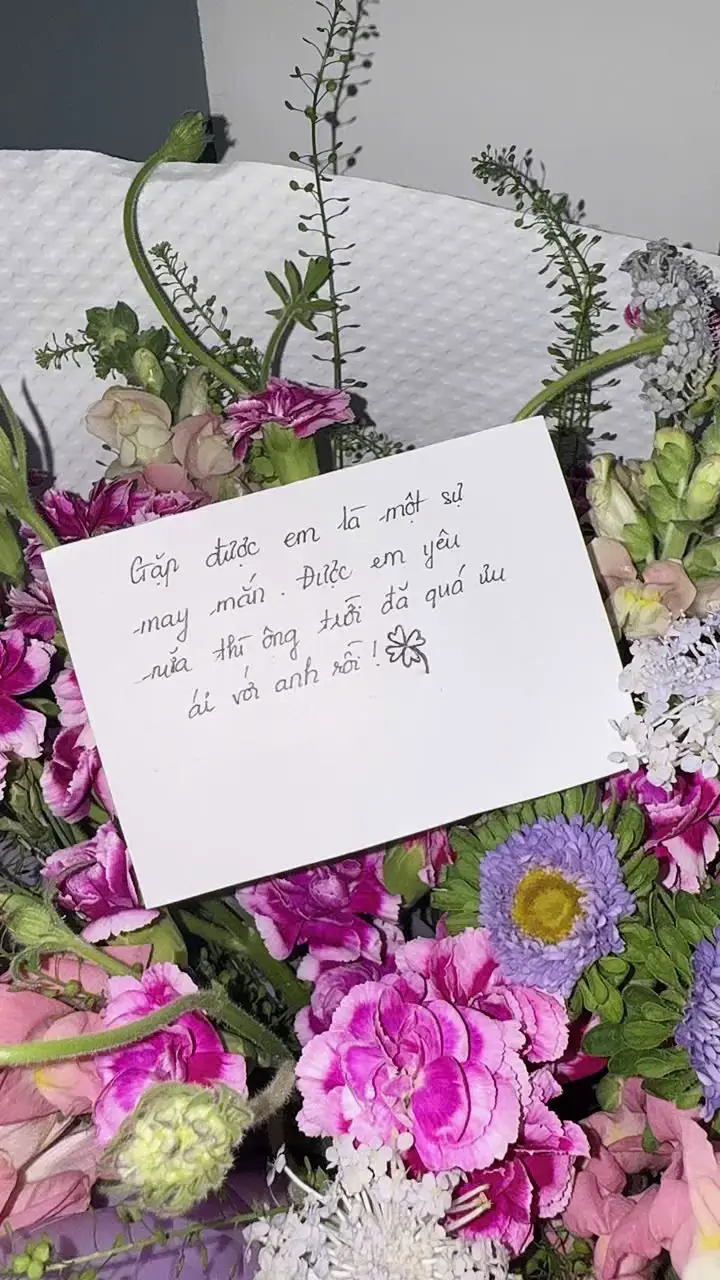 Gặp được em là một sự
may mắn. Được em yêu
nữa thì ông trời đã quá ưu
ái với anh rồi!